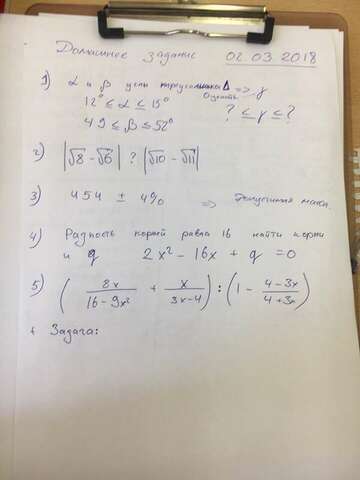 Домашнее задание 02.03.2018
1) α и β углы треугольника Δ => γ
Оценить
12° ≤ α ≤ 15° ? ≤ γ ≤ ?
49 ≤ β ≤ 52°
2) |√8 - √6| ? |√10 - √11|
3) 454 ± 4% => Допустимая масса
4) Разность корней равна 16 найти корни
и q 2x² - 16x + q = 0
5) (8x/(16 - 9x²) + x/(3x-4)) : (1 - (4-3x)/(4+3x))
+ Задача: